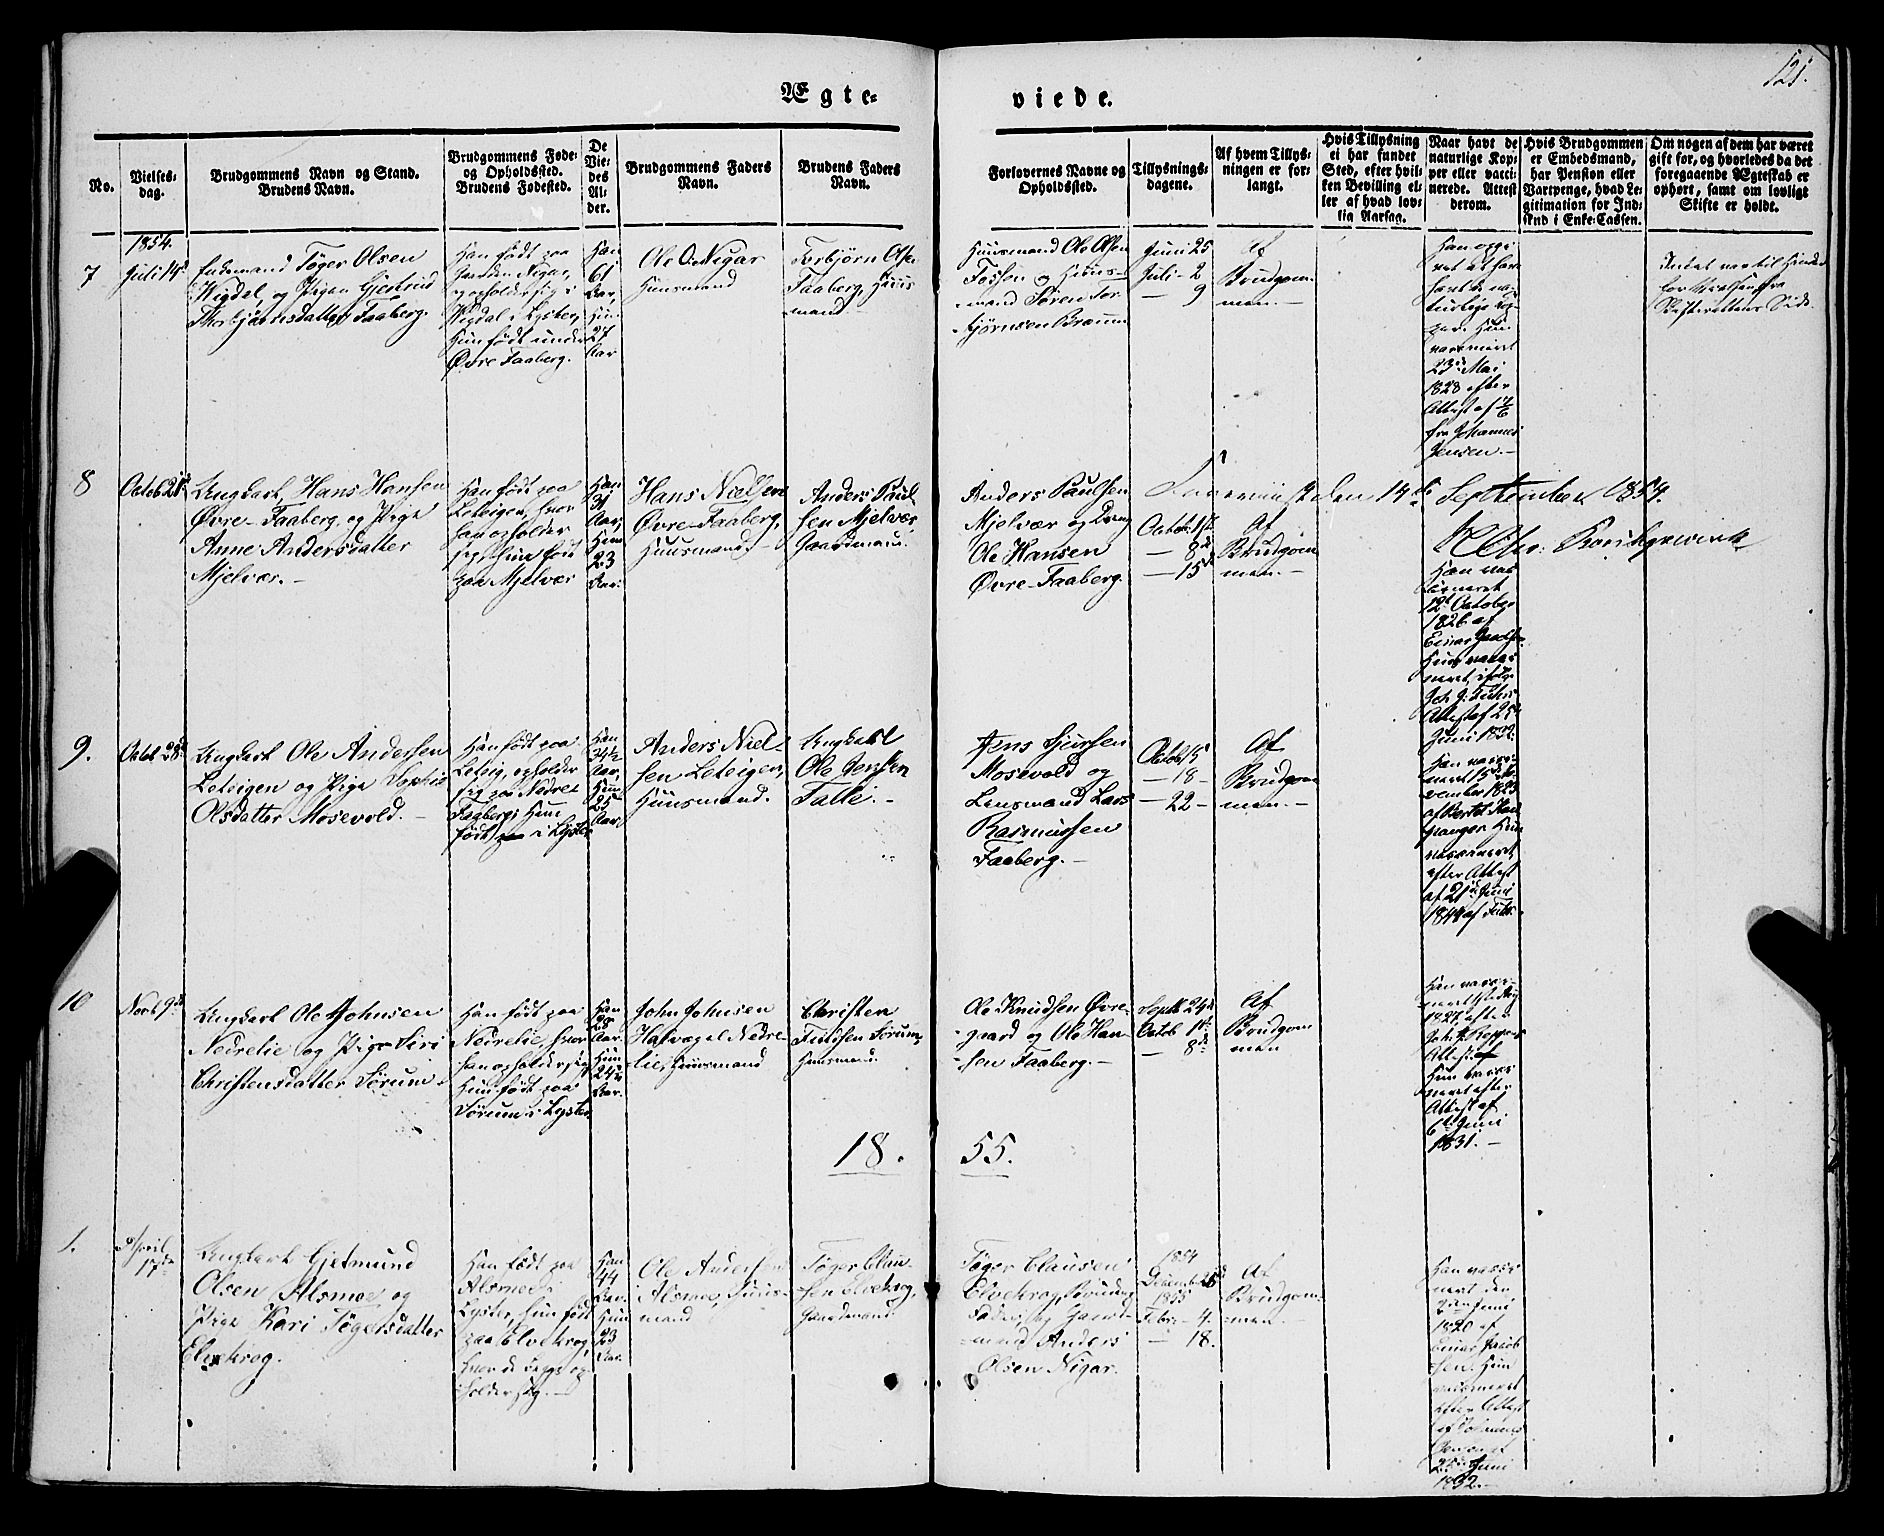 121.
Ægte-
viede.
No.
Vielses-
dag.
Brudgommens Navn og Stand.
Brudens Navn.
Brudgommens Føde-
og Opholdssted.
Brudens Fødested.
De
Vie-
des
Al-
der.
Brudgommens Faders
Navn.
Brudens Faders
Navn.
Forlovernes Navne og
Opholdssted.
Tillysnings-
dagene.
Af hvem Tillys-
ningen er for-
langt.
Hvis Tillysning
ei har fundet
Sted, efter hvil-
ken Bevilling el-
ler af hvad lov-
lig Aarsag.
Naar havt de
naturlige Kop-
per eller vacci-
nerede. Attest
derom.
Hvis Brudgommen
er Embedsmand,
har Pension eller
Vartpenge, hvad Le-
gitimation for Ind-
skud i Enke-Cassen.
Om nogen af dem har været
gift før, og hvorledes da det
foregaaende Ægteskab er
ophørt, samt om lovligt
Skifte er holdt.
1854.
7
Juli 14
Enkemand Tøger Olsen
Wigdal, og Pigen Gjertrud
Thorbjørnsdatter Faaberg.
Han født paa
Gaarden Nigar,
opholder sig i
Wigdal i Lyster,
Hun født under
Øvre Faaberg.
Han
61
Aar,
Hun
27
Aar
Ole Nigar
Huusmand
Torbjørn Olsen
Faaberg, Huus-
mand
Huusmand Ole Olsen
Fossen og Huus-
mand Søren Tor-
bjørnsen Bruum
Juni 25
Juli - 2
— 9
Af
Brudgom-
men.—
Han opgi-
vet at have
havt de na-
turlige Kop-
per. Hun
vaccineret
23de Mai
1828 efter
Attest af
fra Johannes
Jensen.—
Intet var til Hinder
for Vielsen fra
Skifterettens Side.
8
Octob 21de
Ungkarl, Hans Hansen
Øvre-Faaberg, og Pige
Anne Andersdatter
Mjelvær.—
Han født paa
Leteigen, hvor
han opholder
sig, Hun født
paa Mjelvær
Han
31
Aar,
Hun
23
Aar.
Hans Nielsen
Øvre-Faaberg,
Huusmand.—
Anders Paul-
sen Mjelvær
Gaardmand.
Anders Paulsen
Mjelvær og Dreng
Ole Hansen
Øvre-Faaberg.
Octob: 1ste
— 8de
— 15de
Af
Brudgom-
men.—
den 14de September 1854.
Han vac-
cineret
12te October
1826 af
Hun vacci-
neret,
Attest af 25de
Juni 1832.
9.
Octob 28de
Ungkarl Ole Andersen
Leteigen og Pige Sophie
Olsdatter Mosevold.—
Han født paa
Leteig, opholder
sig paa Nedre
Faaberg; Hun
født i Lyster
Han
34½
Aar,
Hun
25
Aar
Anders Niel-
sen Leteigen,
Huusmand.
Ungkarl
Ole Jensen
Talle.—
Jens Sjursen
Mosevold og
Lensmand Lars
Rasmussen
Faaberg.—
Octob 15
— 18 —
— 22 —
Af
Brudgom-
men.—
Han vacci-
neret 15de No-
vember 1823
af
Hun
vaccineret,
efter Attest
af 21de Juni
10
Novb 9de
Ungkarl Ole Johnsen
Nedrelie og Pige Siri
Christensdatter Sørum.
Han født paa
Nedrelie, hvor
han opholder sig,
Hun født paa
Sørum i Lyster
Han
28
Aar.
Hun
24½
Aar.
John Johnsen
Nedre-
lie, Huusmand
Christen
Sørum,
Huusmand.
Ole Knudsen Øvre-
gaard og Ole Han-
sen Faaberg.—
Septb 24de
Octob 1ste
— 8de
Af
Brudgom
men
Han vacci-
neret
1827, efter
Attest
Hun vacci-
neret efter
Attest af
6te Juni
1831.—
18. 55.
1.
April
17de
Ungkarl Gjetmund
Olsen Alsmoe og
Pige Kari Tøgersdatter
Elvekrog.
Han født paa
Alsmoe i
Lyster, Hun født
paa Elvekrog,
hvor de begge op-
holder sig.—
Han
44
Aar.
Hun
23
Aar.
Ole Andersen
Alsmoe, Huus-
mand
Tøger Clau-
sen Elvekrog,
Gaardmand
Tøger Clausen
Elvekrog, Brudens
Fader, og Gaard-
mand Anders
Olsen Nigar.
1854
December 26de
1855
Febr. - 4.
— 18.
Af
Brudgom-
men.—
Han vacci-
neret den
9de Juni
1820 af
Einar Jacob-
sen. Hun
vaccineret
efter Attest
af Johannes
Jensen af
25de Juni
1832.—